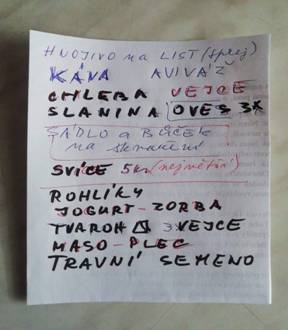 HNOJIVO na LIST (sprej)
KÁVA AVIVÁŽ
CHLEBA VEJCE
SLANINA OVES 3x
SÁDLO a BŮČEK
na škvaření
SVÍCE 5ks (největší)
ROHLÍKY
JOGURT - ZORBA
TVAROH 3x VEJCE
MASO - PLEC
TRAVNÍ SEMENO